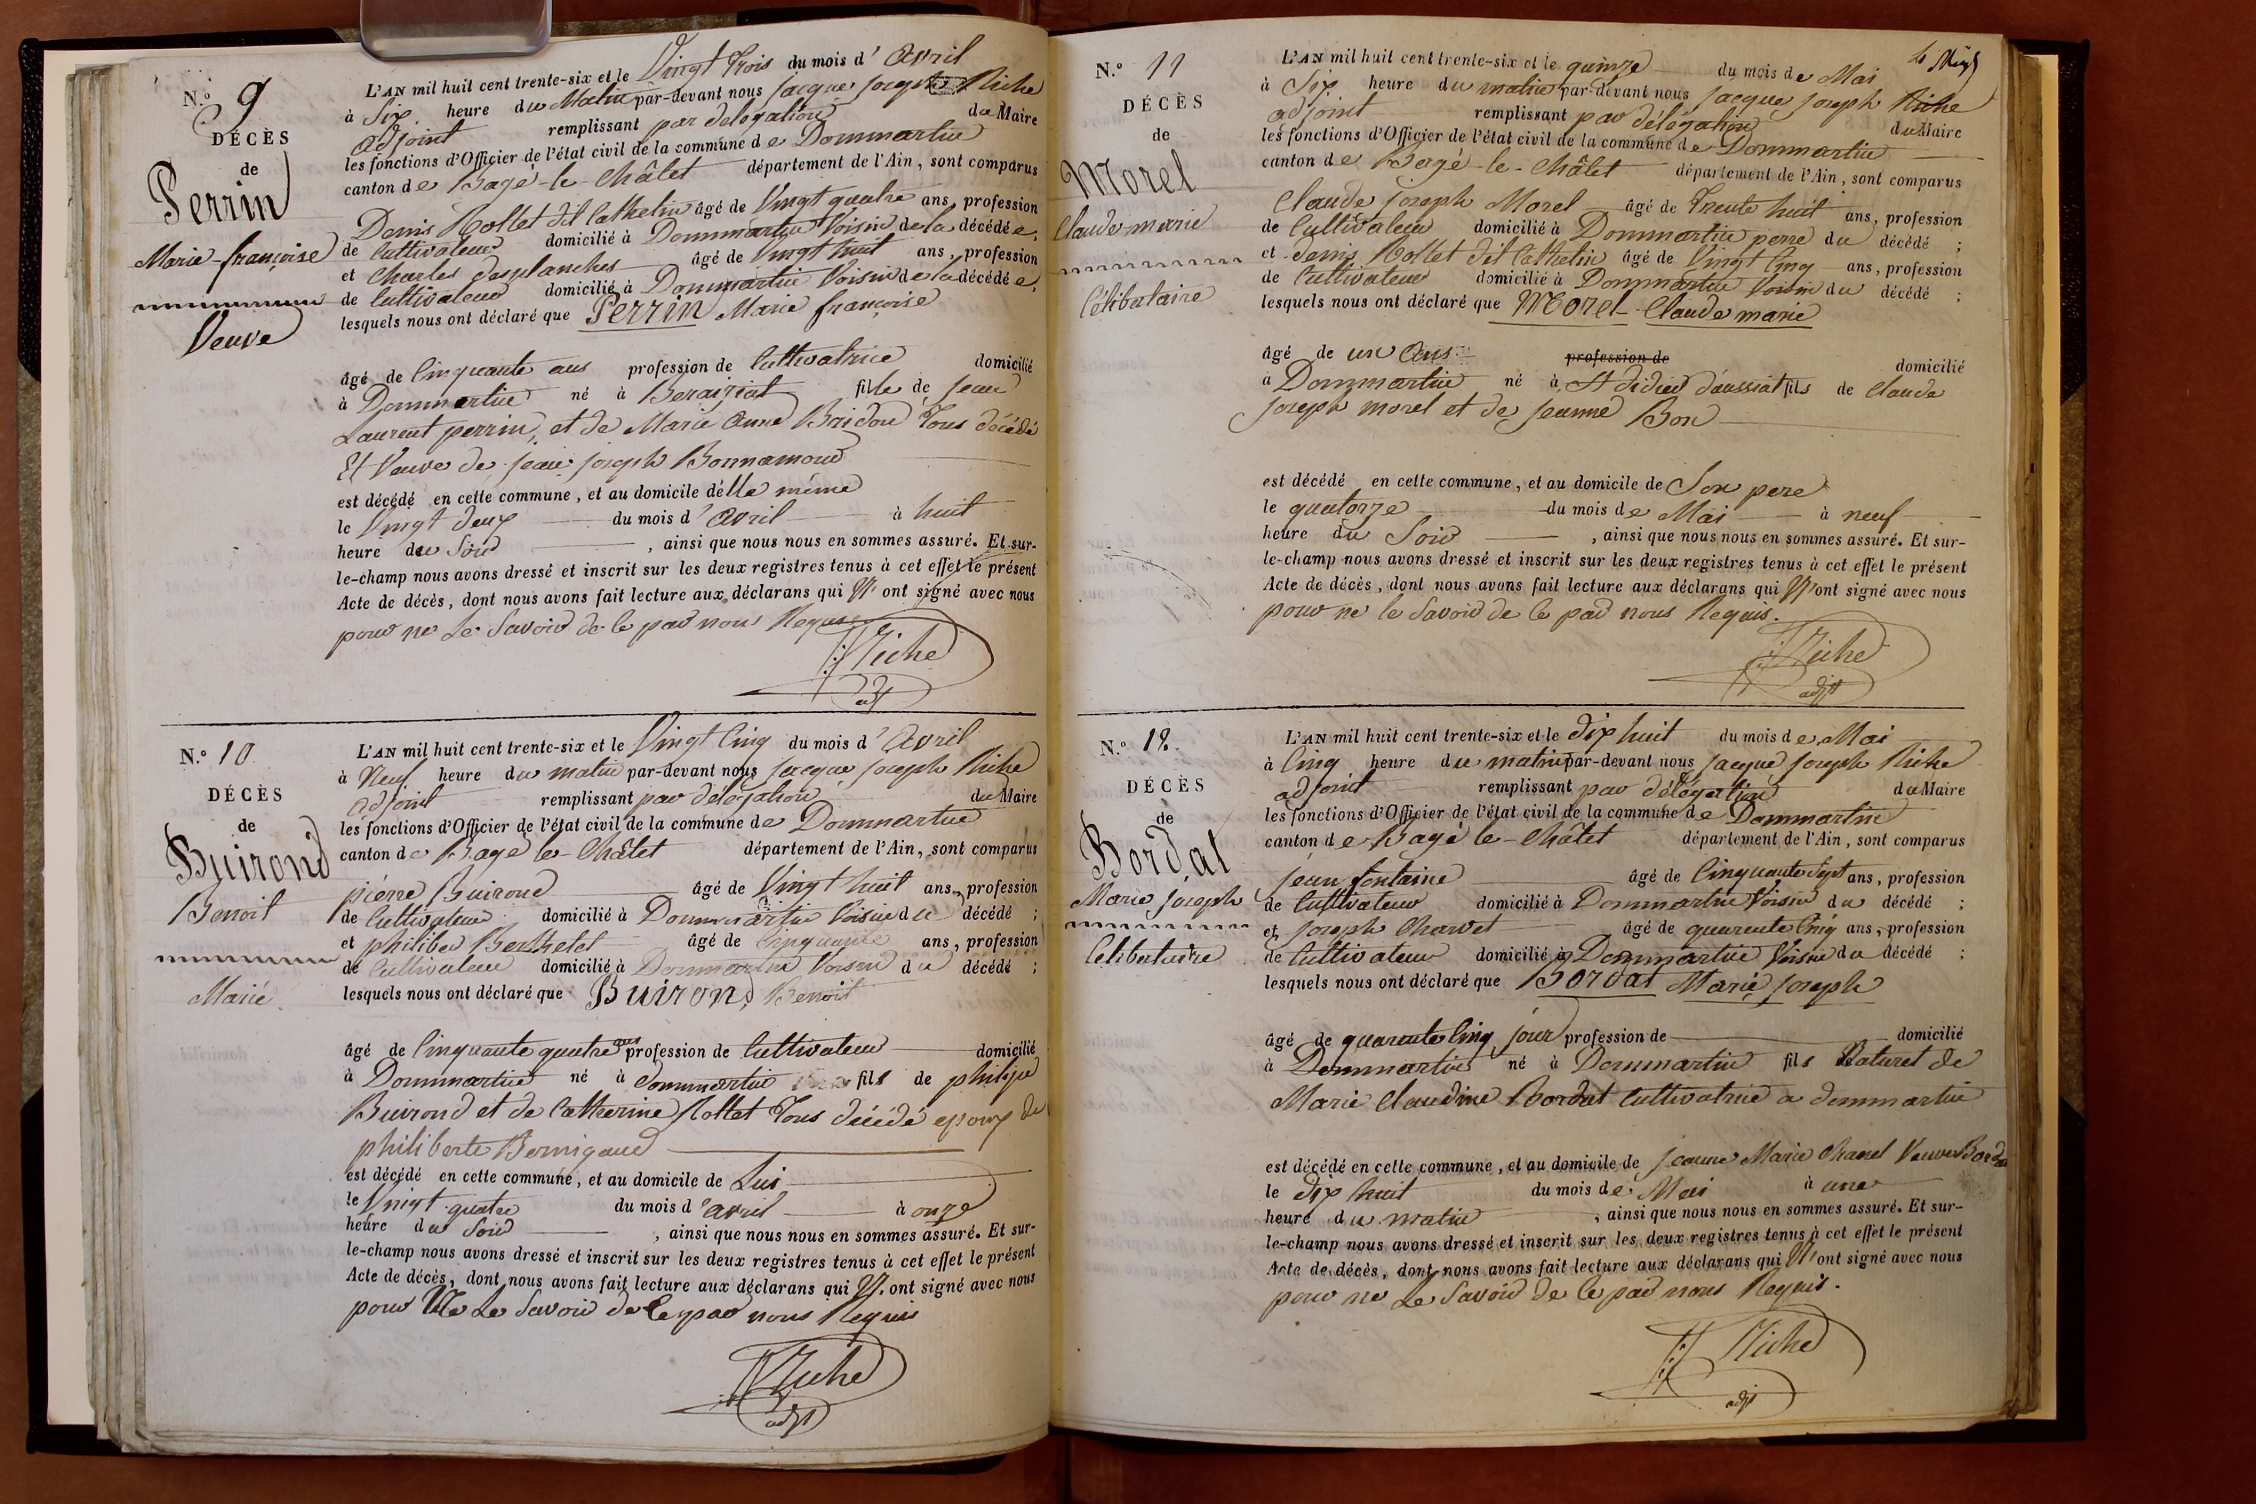 N.º 9
DÉCÈS
de
Perrin
Marie françoise
Veuve
L'AN mil huit cent trente-six et le Vingt Trois du mois d' Avril
à Six heure du Matin par-devant nous jacque joseph Riche
adjoint remplissant par délégation du Maire
les fonctions d'Officier de l'état civil de la commune de Dommartin
canton de Bagé-le-Châlet département de l'Ain, sont comparus
Denis Rollet dit Cathelin âgé de Vingt quatre ans, profession
de Cultivateur domicilié à Dommartin Voisin de la décédée,
et Charles desplanches âgé de Vingt huit ans, profession
de Cultivateur domicilié à Dommartin Voisin de la décédée,
lesquels nous ont déclaré que Perrin Marie françoise
âgé de Cinquante ans profession de Cultivatrice domicilié
à Dommartin né à Beraiziat fille de jean
Laurent perrin, et de Marie Anne Bridon Tous décédé
Et Veuve de jean joseph Bonnamour
est décédé en cette commune, et au domicile d'elle même
le Vingt deux du mois d' Avril à huit
heure du Soir, ainsi que nous nous en sommes assuré. Et sur-
le-champ nous avons dressé et inscrit sur les deux registres tenus à cet effet le présent
Acte de décès, dont nous avons fait lecture aux déclarans qui N'ont signé avec nous
pour ne Le Savoir de ce par nous Requis
Riche
adjt
N.º 10
DÉCÈS
de
Buirond
Benoit
Marié
L'AN mil huit cent trente-six et le Vingt Cinq du mois d' Avril
à Neuf heure du matin par-devant nous jacque joseph Riche
adjoint remplissant par délégation du Maire
les fonctions d'Officier de l'état civil de la commune de Dommartin
canton de Bagé le-Châlet département de l'Ain, sont comparus
pierre Buirond âgé de Vingt huit ans, profession
de Cultivateur domicilié à Dommartin Voisin du décédé ;
et philiber Berthelet âgé de Cinquante ans, profession
de Cultivateur domicilié à Dommartin Voisin du décédé ;
lesquels nous ont déclaré que Buirond Benoit
âgé de Cinquante quatre ans profession de Cultivateur domicilié
à Dommartin né à dommartin fils de philipe
Buirond et de Catherine Rollet Tous décédé epoux de
philiberte Bernigaud
est décédé en cette commune, et au domicile de Lui
le Vingt quatre du mois d' avril à onze
heure du Soir, ainsi que nous nous en sommes assuré. Et sur-
le-champ nous avons dressé et inscrit sur les deux registres tenus à cet effet le présent
Acte de décès, dont nous avons fait lecture aux déclarans qui N'ont signé avec nous
pour Ne Le Savoir de Ce par nous Requis
Riche
adjt
N.º 11
DÉCÈS
de
Morel
Claude marie
Célibataire
L'AN mil huit cent trente-six et le quinze du mois de Mai
à Six heure du matin par-devant nous jacque joseph Riche
adjoint remplissant par délégation du Maire
les fonctions d'Officier de l'état civil de la commune de Dommartin
canton de Bagé-le-Châlet département de l'Ain, sont comparus
Claude joseph Morel âgé de Trente huit ans, profession
de Cultivateur domicilié à Dommartin perre du décédé ;
et denis Rollet dit Cathelin âgé de Vingt Cinq ans, profession
de Cultivateur domicilié à Dommartin Voisin du décédé ;
lesquels nous ont déclaré que Morel Claude marie
âgé de un Ans profession de domicilié
à Dommartin né à St didier d'aussiat fils de Claude
joseph morel et de jeanne Bon
est décédé en cette commune, et au domicile de Son pere
le quatorze du mois de Mai à neuf
heure du Soir, ainsi que nous nous en sommes assuré. Et sur-
le-champ nous avons dressé et inscrit sur les deux registres tenus à cet effet le présent
Acte de décès, dont nous avons fait lecture aux déclarans qui N'ont signé avec nous
pour ne le Savoir de Ce par nous Requis.
Riche
adjt
N.º 12.
DÉCÈS
de
Bordat
Marie joseph
Célibataire
L'AN mil huit cent trente-six et le dix huit du mois de Mai
à Cinq heure du matin par-devant nous jacque joseph Riche
adjoint remplissant par délégation du Maire
les fonctions d'Officier de l'état civil de la commune de Dommartin
canton de Bagé le-Châlet département de l'Ain, sont comparus
jean fontaine âgé de Cinquante Sept ans, profession
de Cultivateur domicilié à Dommartin Voisin du décédé ;
et joseph Charvet âgé de quarente Cinq ans, profession
de Cultivateur domicilié à Dommartin Voisin du décédé ;
lesquels nous ont déclaré que Bordat Marie joseph
âgé de quarente Cinq jour profession de domicilié
à Dommartin né à Dommartin fils Naturel de
Marie Claudine Bordat Cultivatrice a dommartin
est décédé en cette commune, et au domicile de jeanne Marie Chanel Veuve Bordat
le dix huit du mois de Mai à une
heure du matin, ainsi que nous nous en sommes assuré. Et sur-
le-champ nous avons dressé et inscrit sur les deux registres tenus à cet effet le présent
Acte de décès, dont nous avons fait lecture aux déclarans qui N'ont signé avec nous
pour ne Le Savoir de Ce par nous Requis.
Riche
adjt